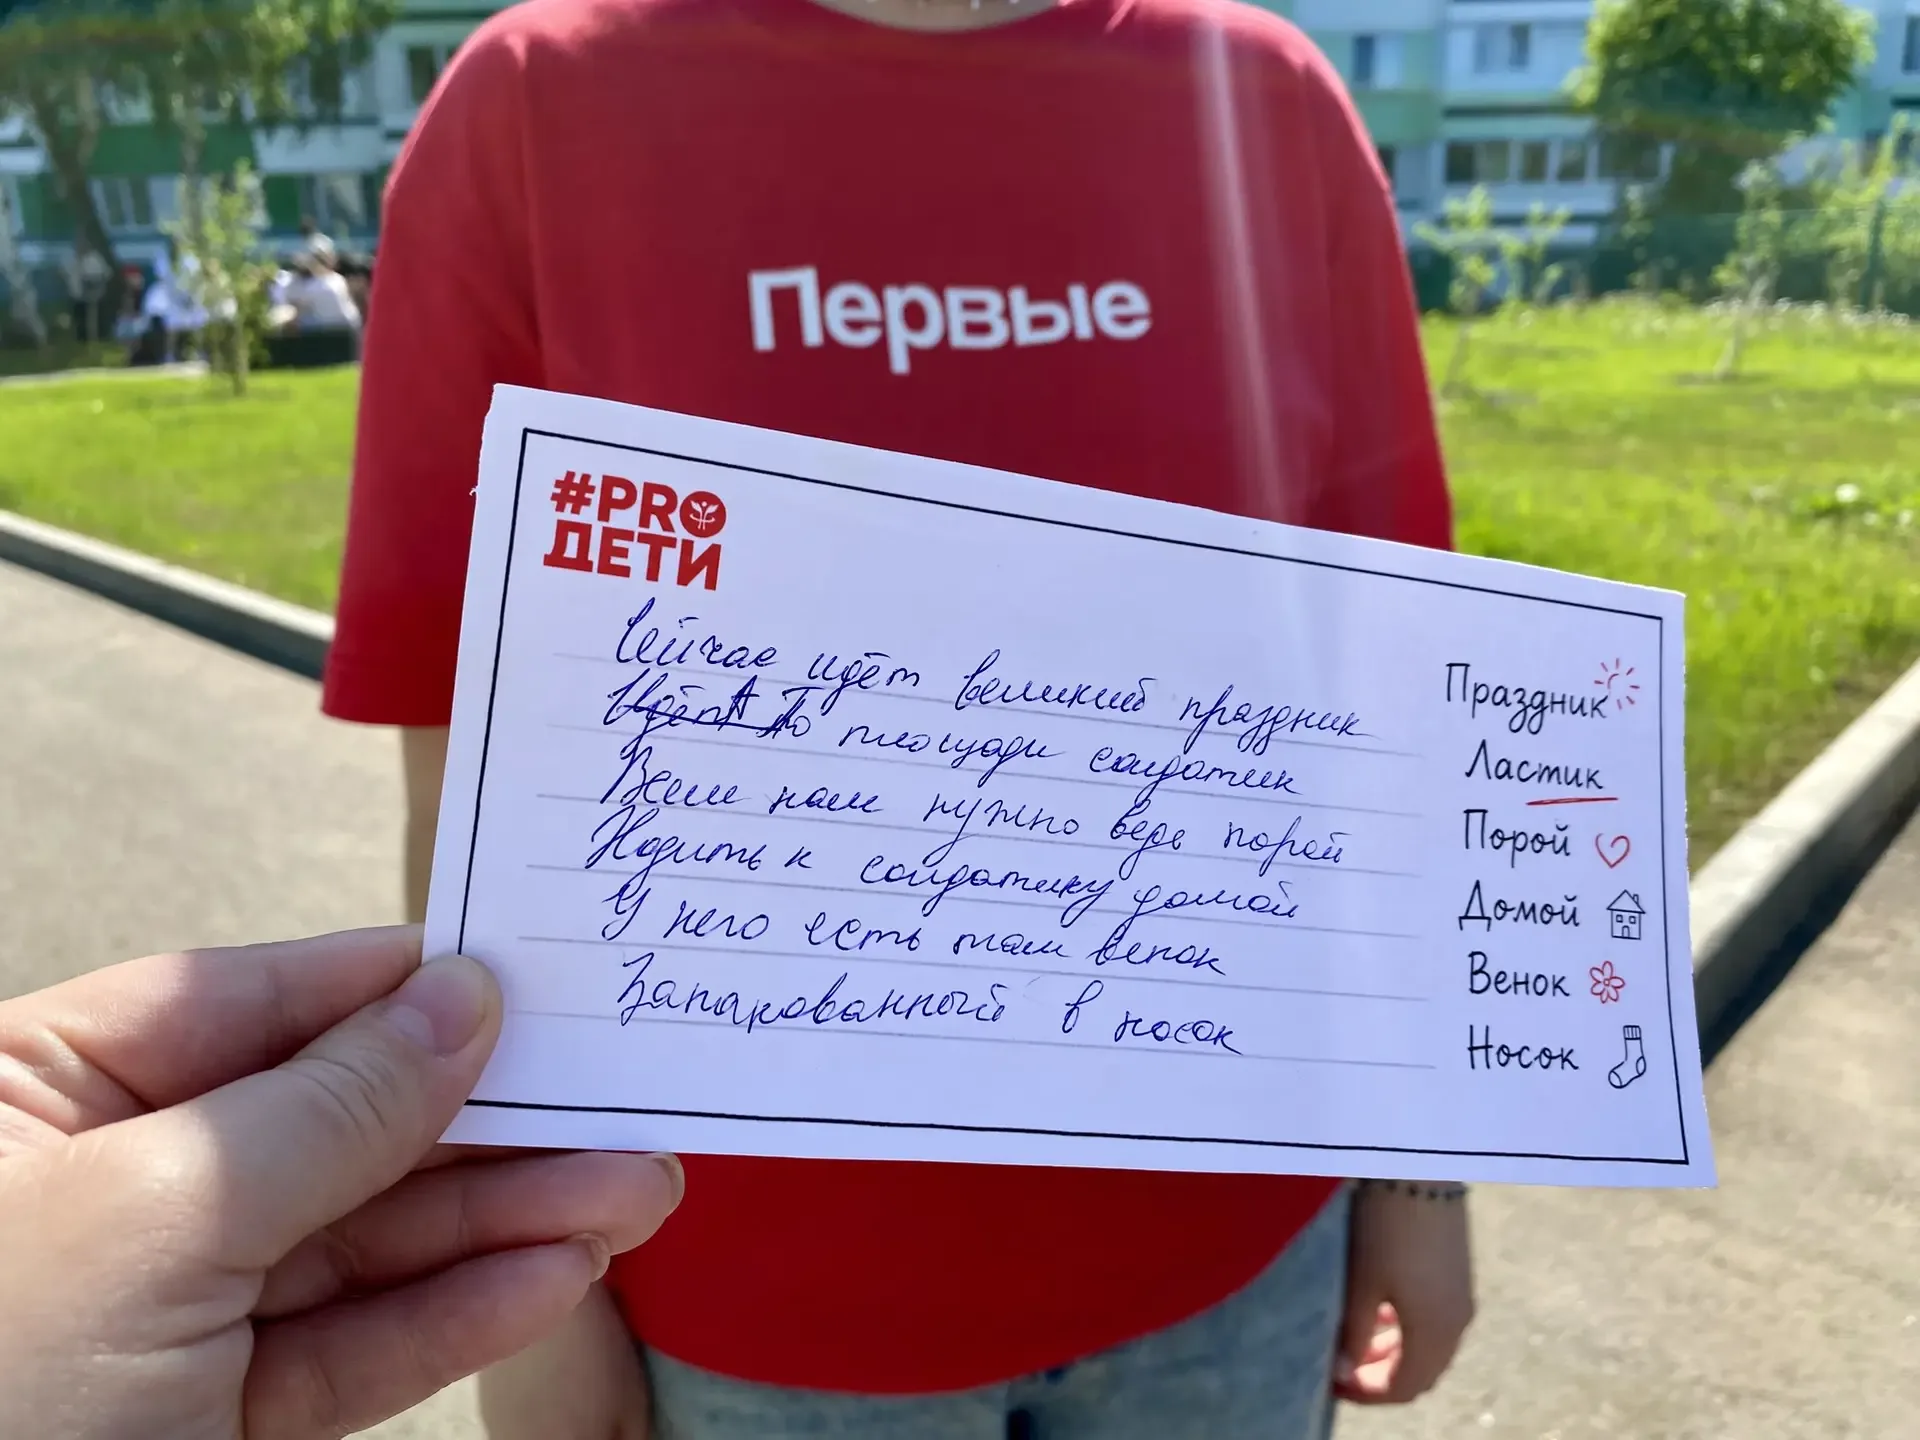 Первые
#PRO
ДЕТИ
Сейчас идёт великий праздник
По площади солдатик
Всем нам нужно ведь порой
Ходить к солдатику домой
У него есть там венок
Запакованный в носок
Праздник
Ластик
Порой
Домой
Венок
Носок